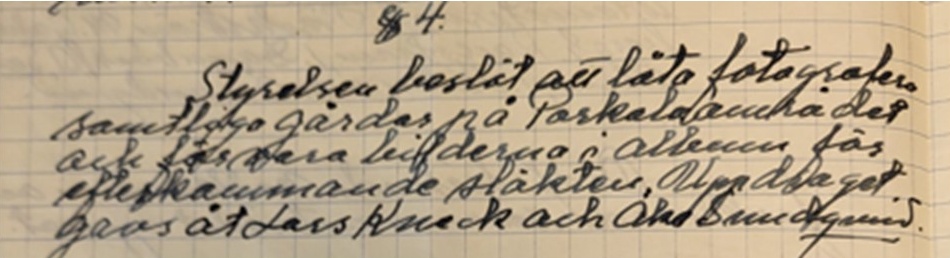 § 4.
Styrelsen beslöt att låta fotografera
samtliga gårdar på Porkalaområdet
och förvara bilderna i album för
efterkommande släkten. Uppdraget
gavs åt Lars Kneck och Åke Sundqvist.